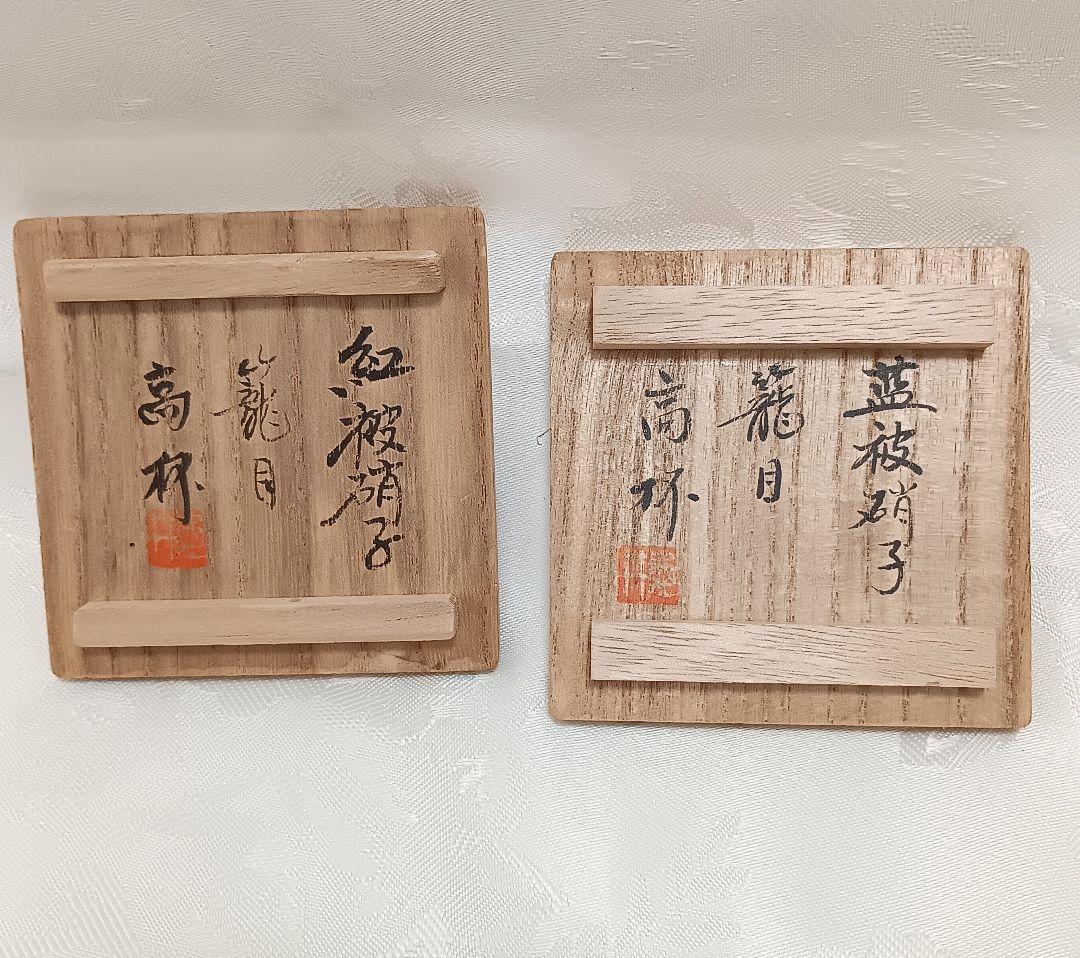 紅被硝子
籠目
高杯
藍被硝子
籠目
高杯